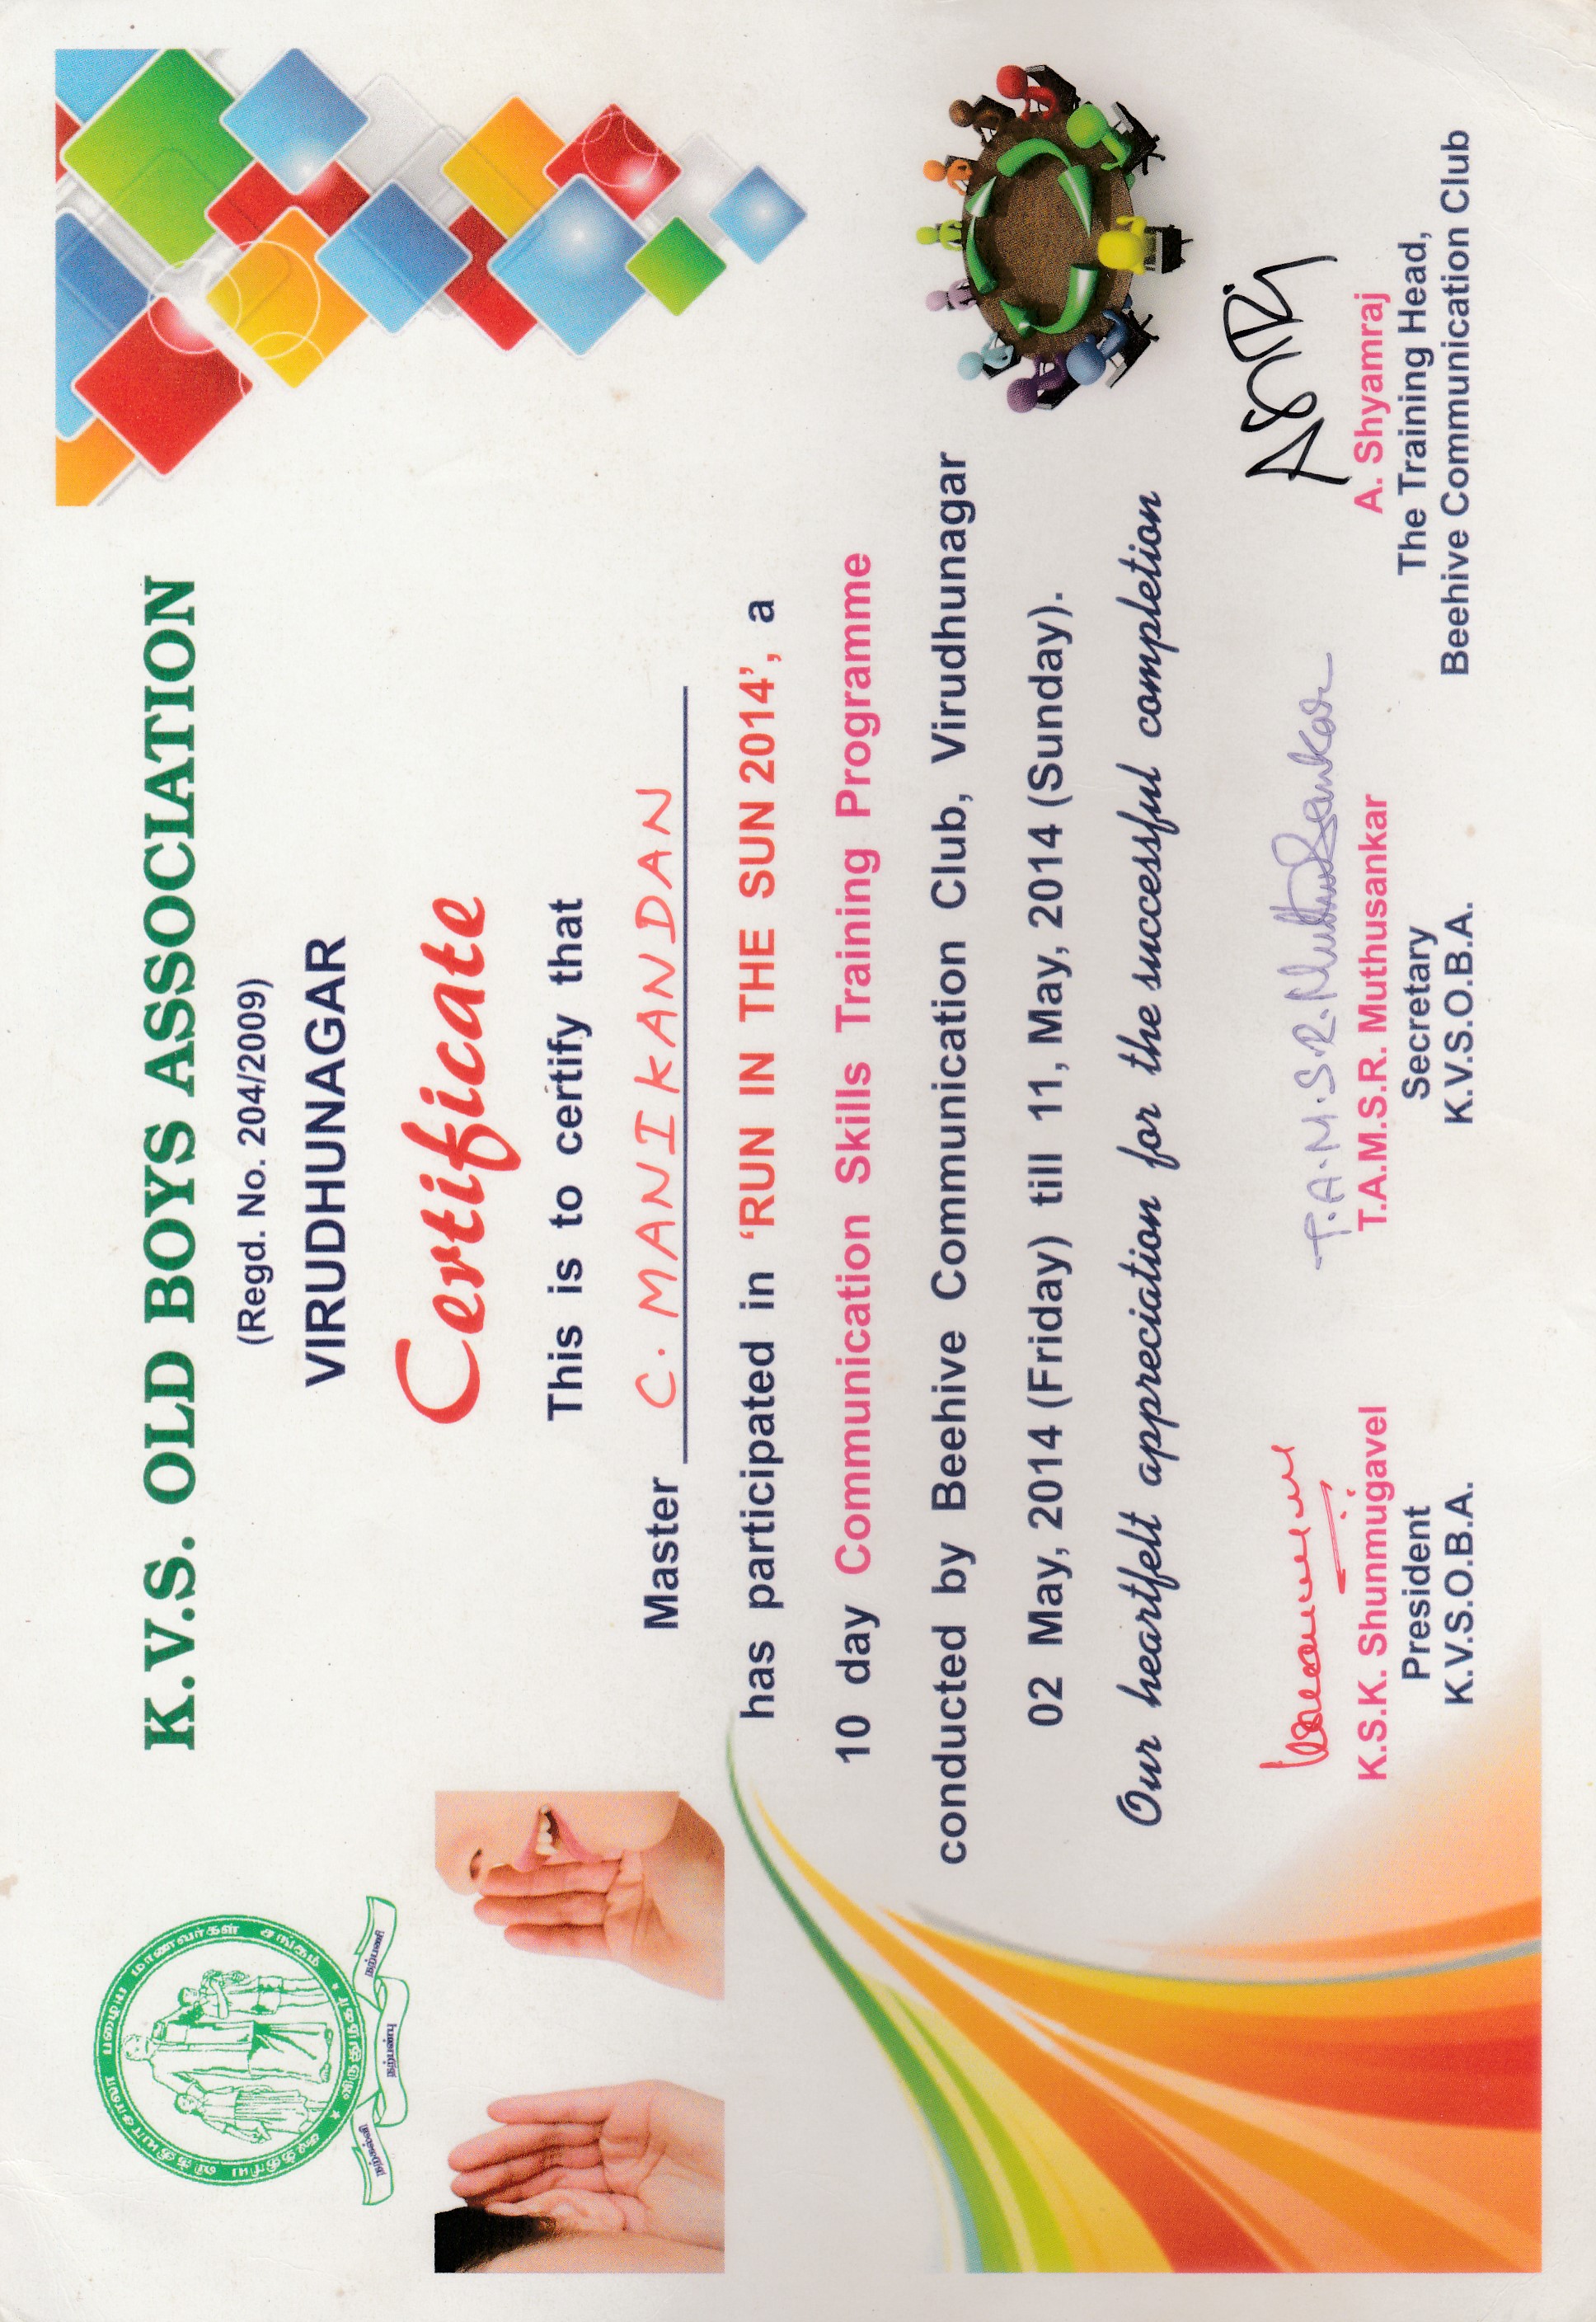 K.V.S. OLD BOYS ASSOCIATION
(Regd. No. 204/2009)
VIRUDHUNAGAR
பழைய மாணவர்கள் சங்கம்
Certificate
This is to certify that
Master C. MANIKANDAN
has participated in ‘RUN IN THE SUN 2014’, a
10 day Communication Skills Training Programme
conducted by Beehive Communication Club, Virudhunagar
02 May, 2014 (Friday) till 11, May, 2014 (Sunday).
Our heartfelt appreciation for the successful completion
T.A.M.S.R. Muthusankar
K.S.K. Shunmugavel
President
K.V.S.O.B.A.
T.A.M.S.R. Muthusankar
Secretary
K.V.S.O.B.A.
A. Shyamraj
The Training Head,
Beehive Communication Club